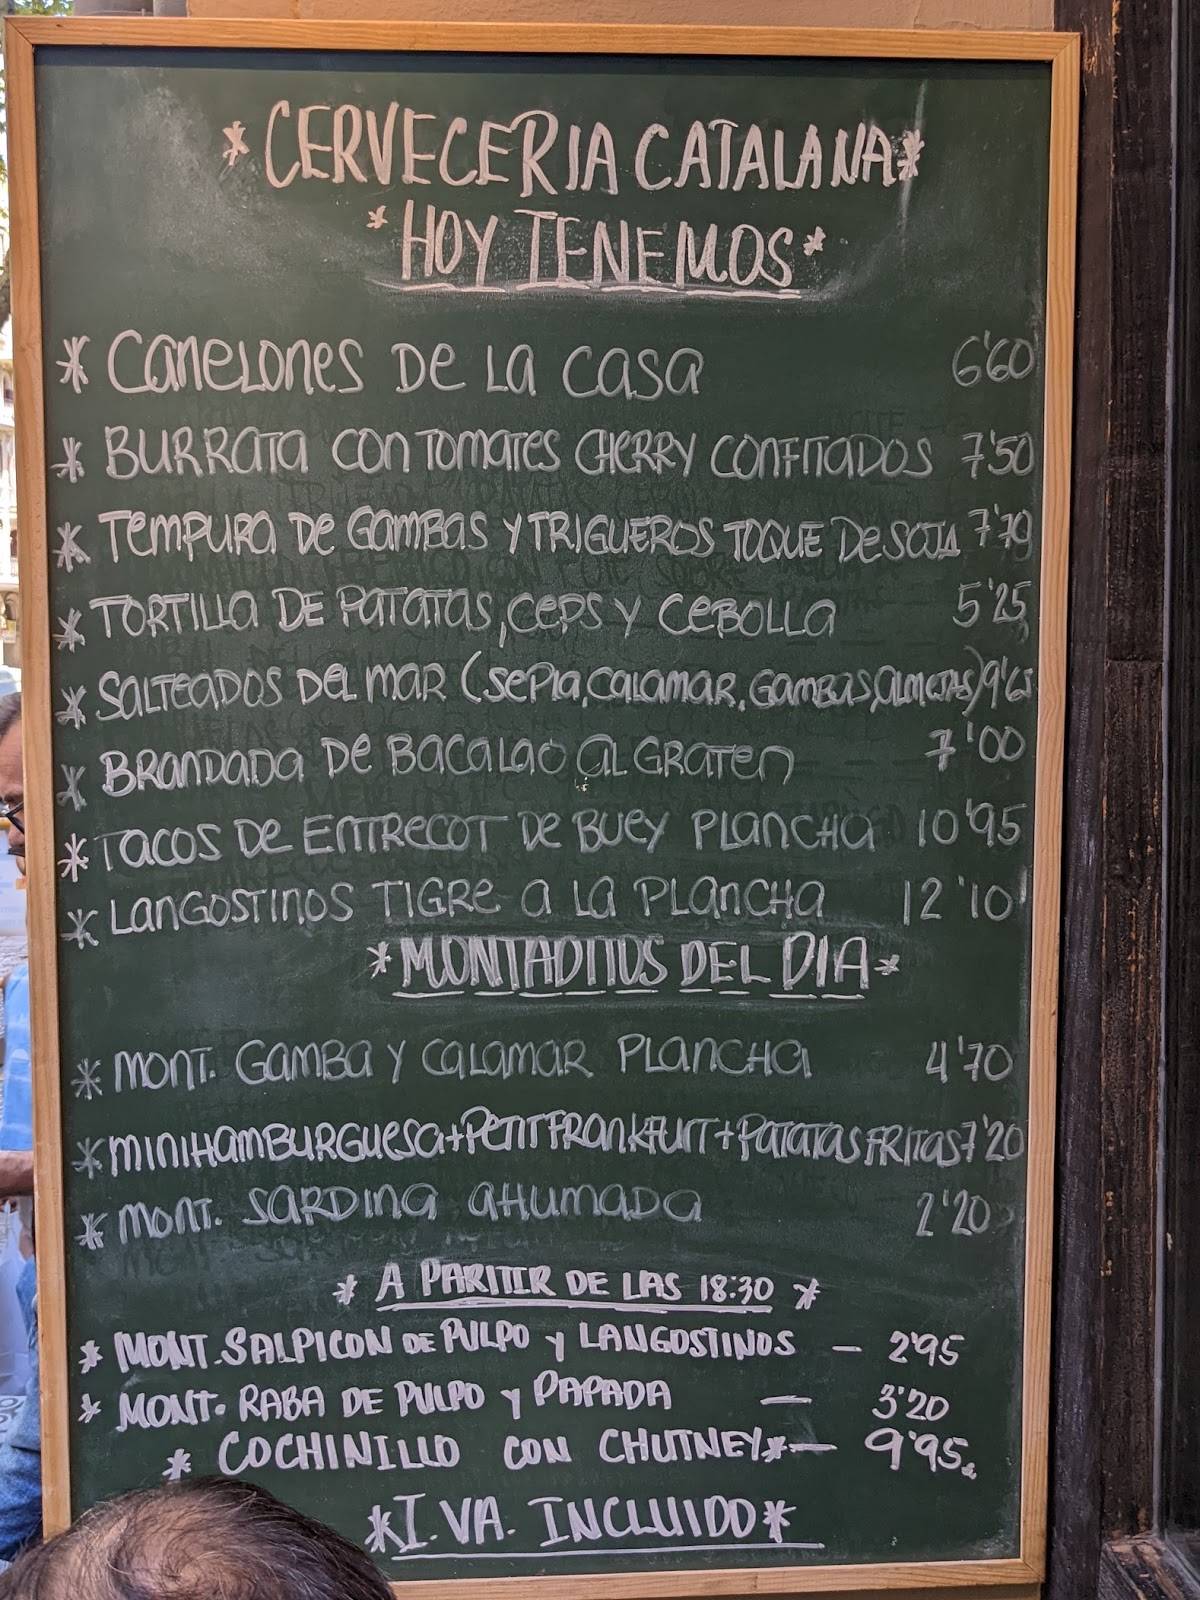 * CERVECERIA CATALANA *
* HOY TENEMOS *
* CANELONES DE LA CASA 6'60
* BURRATA CON TOMATES CHERRY CONFITADOS 7'50
* TEMPURA DE GAMBAS Y TRIGUEROS TOQUE DE SOJA 7'70
* TORTILLA DE PATATAS, CEPS Y CEBOLLA 5'25
* SALTEADOS DEL MAR (SEPIA, CALAMAR, GAMBAS, ALMEJAS) 9'65
* BRANDADA DE BACALAO AL GRATEN 7'00
* TACOS DE ENTRECOT DE BUEY PLANCHA 10'95
* LANGOSTINOS TIGRE A LA PLANCHA 12'10
* MONTADITOS DEL DIA *
* MONT. GAMBA Y CALAMAR PLANCHA 4'70
* MINIHAMBURGUESA+PETIT FRANKFURT+PATATAS FRITAS 7'20
* MONT. SARDINA AHUMADA 2'20
* A PARTIR DE LAS 18:30 *
* MONT. SALPICON DE PULPO Y LANGOSTINOS — 2'95
* MONT. RABA DE PULPO Y PAPADA — 3'20
* COCHINILLO CON CHUTNEY * — 9'95
* I.VA. INCLUIDO *